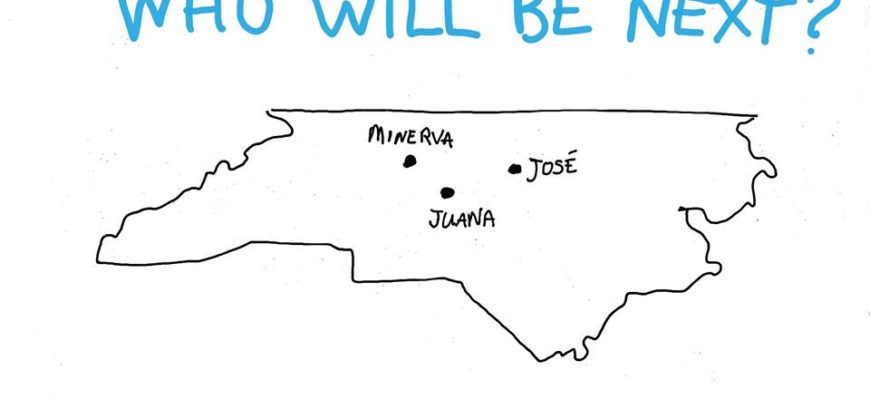 WHO WILL BE NEXT?
MINERVA
JOSÉ
JUANA